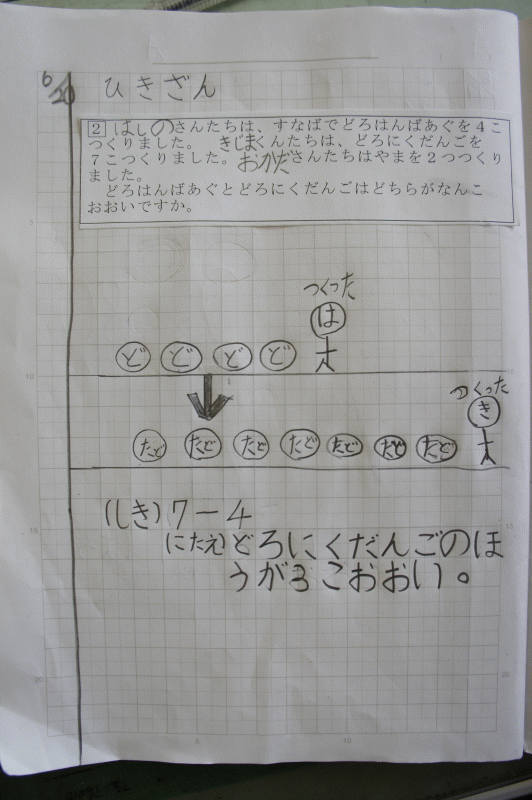 6/20
ひきざん
2 はしのさんたちは、すなばでどろはんばあぐを4こ
つくりました。 きじまくんたちは、どろにくだんごを
7こつくりました。おかださんたちはやまを2つつくり
ました。
どろはんばあぐとどろにくだんごはどちらがなんこ
おおいですか。
つくった
は
ど ど ど ど
つくった
き
たど たど たど たど たど たど たど
(しき)7-4
(こたえ)どろにくだんごのほ
うが3こおおい。
5
10
10
15
15
20
20
5
10